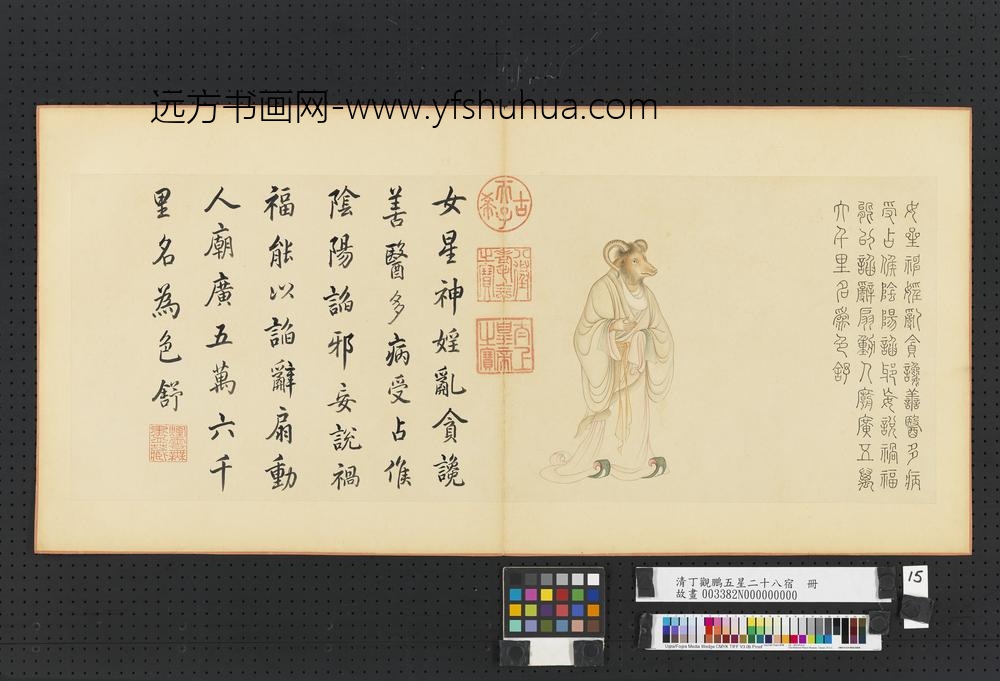 远方书画网-www.yfshuhua.com
女星神婬亂貪讒善醫多病
受占候陰陽諂邪妄說禍福
能以諂辭扇動人廟廣五萬
六千里名為色舒
古
希
天子
八徵
耄念
之寶
太上
皇帝
之寶
女星神婬亂貪讒
善醫多病受占候
陰陽諂邪妄說禍
福能以諂辭扇動
人廟廣五萬六千
里名為色舒
清丁觀鵬五星二十八宿 冊
故畫 003382N000000000
15
Ugra/Fogra Media Wedge CMYK TIFF V3.0b Proof